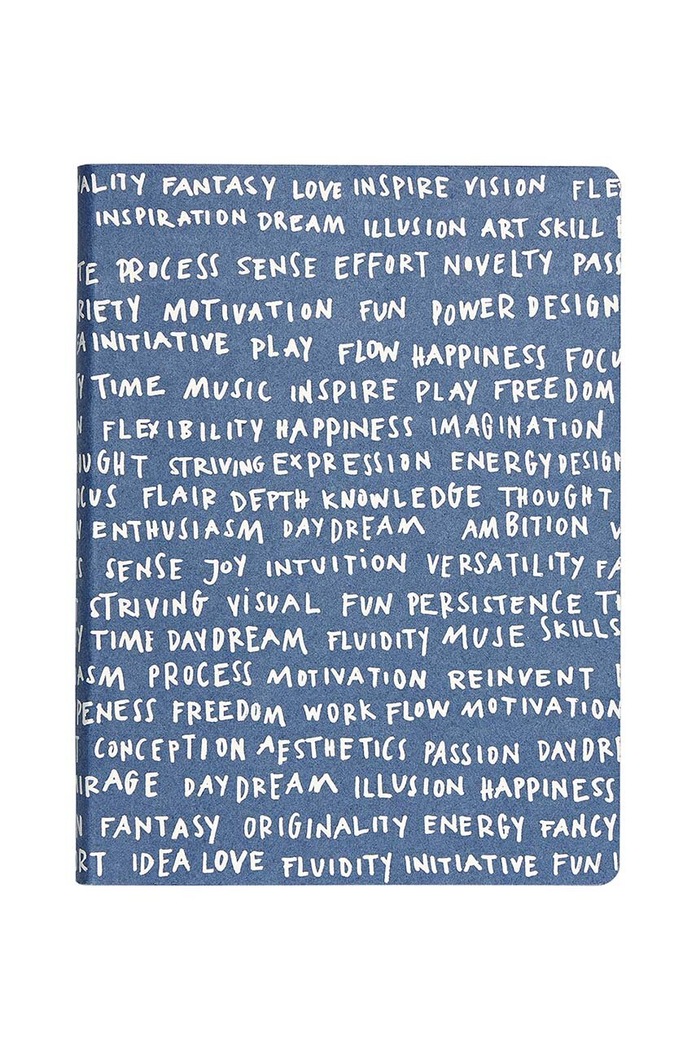 ALITY FANTASY LOVE INSPIRE VISION FLE
INSPIRATION DREAM ILLUSION ART SKILL
TE PROCESS SENSE EFFORT NOVELTY PASS
RIETY MOTIVATION FUN POWER DESIGN
EA INITIATIVE PLAY FLOW HAPPINESS FOCU
Y TIME MUSIC INSPIRE PLAY FREEDOM
FLEXIBILITY HAPPINESS IMAGINATION
OUGHT STRIVING EXPRESSION ENERGY DESIGN
CUS FLAIR DEPTH KNOWLEDGE THOUGHT
ENTHUSIASM DAYDREAM AMBITION V
S SENSE JOY INTUITION VERSATILITY FA
STRIVING VISUAL FUN PERSISTENCE T
Y TIME DAYDREAM FLUIDITY MUSE SKILLS
ASM PROCESS MOTIVATION REINVENT
PENESS FREEDOM WORK FLOW MOTIVATION
T CONCEPTION AESTHETICS PASSION DAYDRE
URAGE DAYDREAM ILLUSION HAPPINESS
N FANTASY ORIGINALITY ENERGY FANCY
RT IDEA LOVE FLUIDITY INITIATIVE FUN I